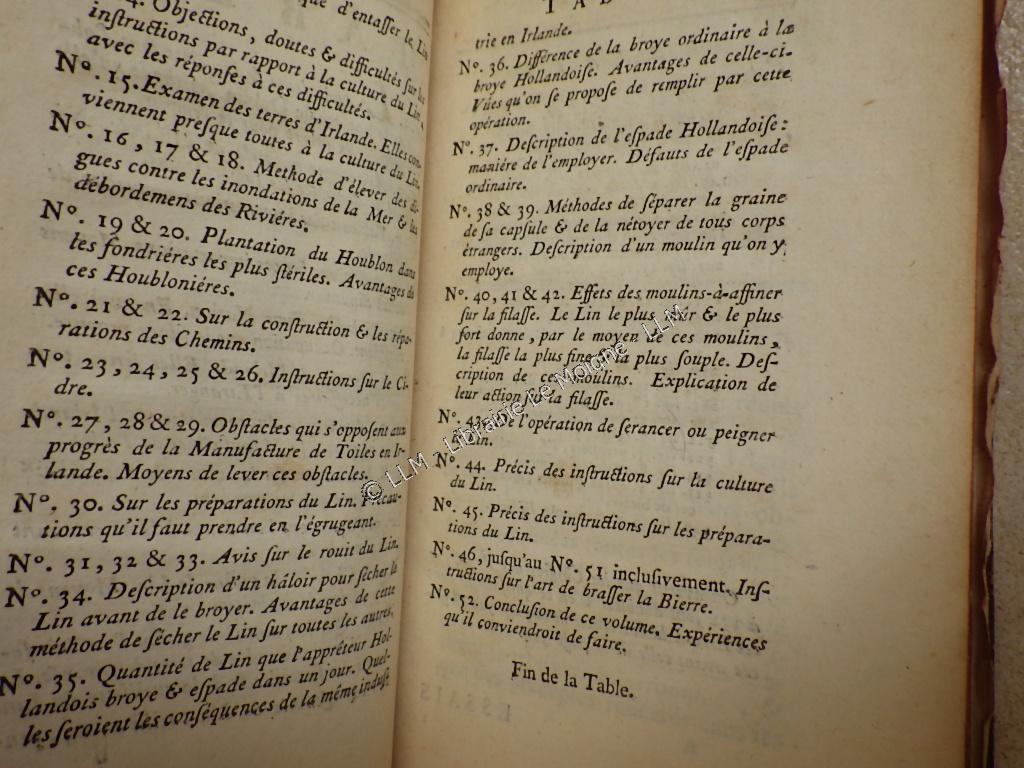 d'entasser le Lin
Objections, doutes & difficultés sur les
instructions par rapport à la culture du Lin,
avec les réponses à ces difficultés.
Nº. 15. Examen des terres d'Irlande. Elles con-
viennent presque toutes à la culture du Lin.
Nº. 16, 17 & 18. Methode d'élever des di-
gues contre les inondations de la Mer & les
débordemens des Riviéres.
Nº. 19 & 20. Plantation du Houblon dans
les fondriéres les plus stériles. Avantages de
ces Houbloniéres.
Nº. 21 & 22. Sur la construction & les répa-
rations des Chemins.
Nº. 23, 24, 25 & 26. Instructions sur le Ci-
dre.
Nº. 27, 28 & 29. Obstacles qui s'opposent aux
progrès de la Manufacture de Toiles en Ir-
lande. Moyens de lever ces obstacles.
Nº. 30. Sur les préparations du Lin. Précau-
tions qu'il faut prendre en l'égrugeant.
Nº. 31, 32 & 33. Avis sur le rouit du Lin.
Nº. 34. Description d'un háloir pour sécher le
Lin avant de le broyer. Avantages de cette
méthode de sécher le Lin sur toutes les autres.
Nº. 35. Quantité de Lin que l'apprêteur Hol-
landois broye & espade dans un jour. Quel-
les seroient les conséquences de la même indus-
TAB
trie en Irlande.
Nº. 36. Différence de la broye ordinaire à la
broye Hollandoise. Avantages de celle-ci.
Vûes qu'on se propose de remplir par cette
opération.
Nº. 37. Description de l'espade Hollandoise :
maniére de l'employer. Défauts de l'espade
ordinaire.
Nº. 38 & 39. Méthodes de séparer la graine
de sa capsule & de la nétoyer de tous corps
étrangers. Description d'un moulin qu'on y
employe.
Nº. 40, 41 & 42. Effets des moulins-à-affiner
sur la filasse. Le Lin le plus mûr & le plus
fort donne, par le moyen de ces moulins,
la filasse la plus fine & la plus souple. Des-
cription de ces moulins. Explication de
leur action sur la filasse.
Nº. 43. De l'opération de serancer ou peigner
le Lin.
Nº. 44. Précis des instructions sur la culture
du Lin.
Nº. 45. Précis des instructions sur les prépara-
tions du Lin.
Nº. 46, jusqu'au Nº. 51 inclusivement. Ins-
tructions sur l'art de brasser la Bierre.
Nº. 52. Conclusion de ce volume. Expériences
qu'il conviendroit de faire.
Fin de la Table.
© LLM - Librairie Le Moione - LLM